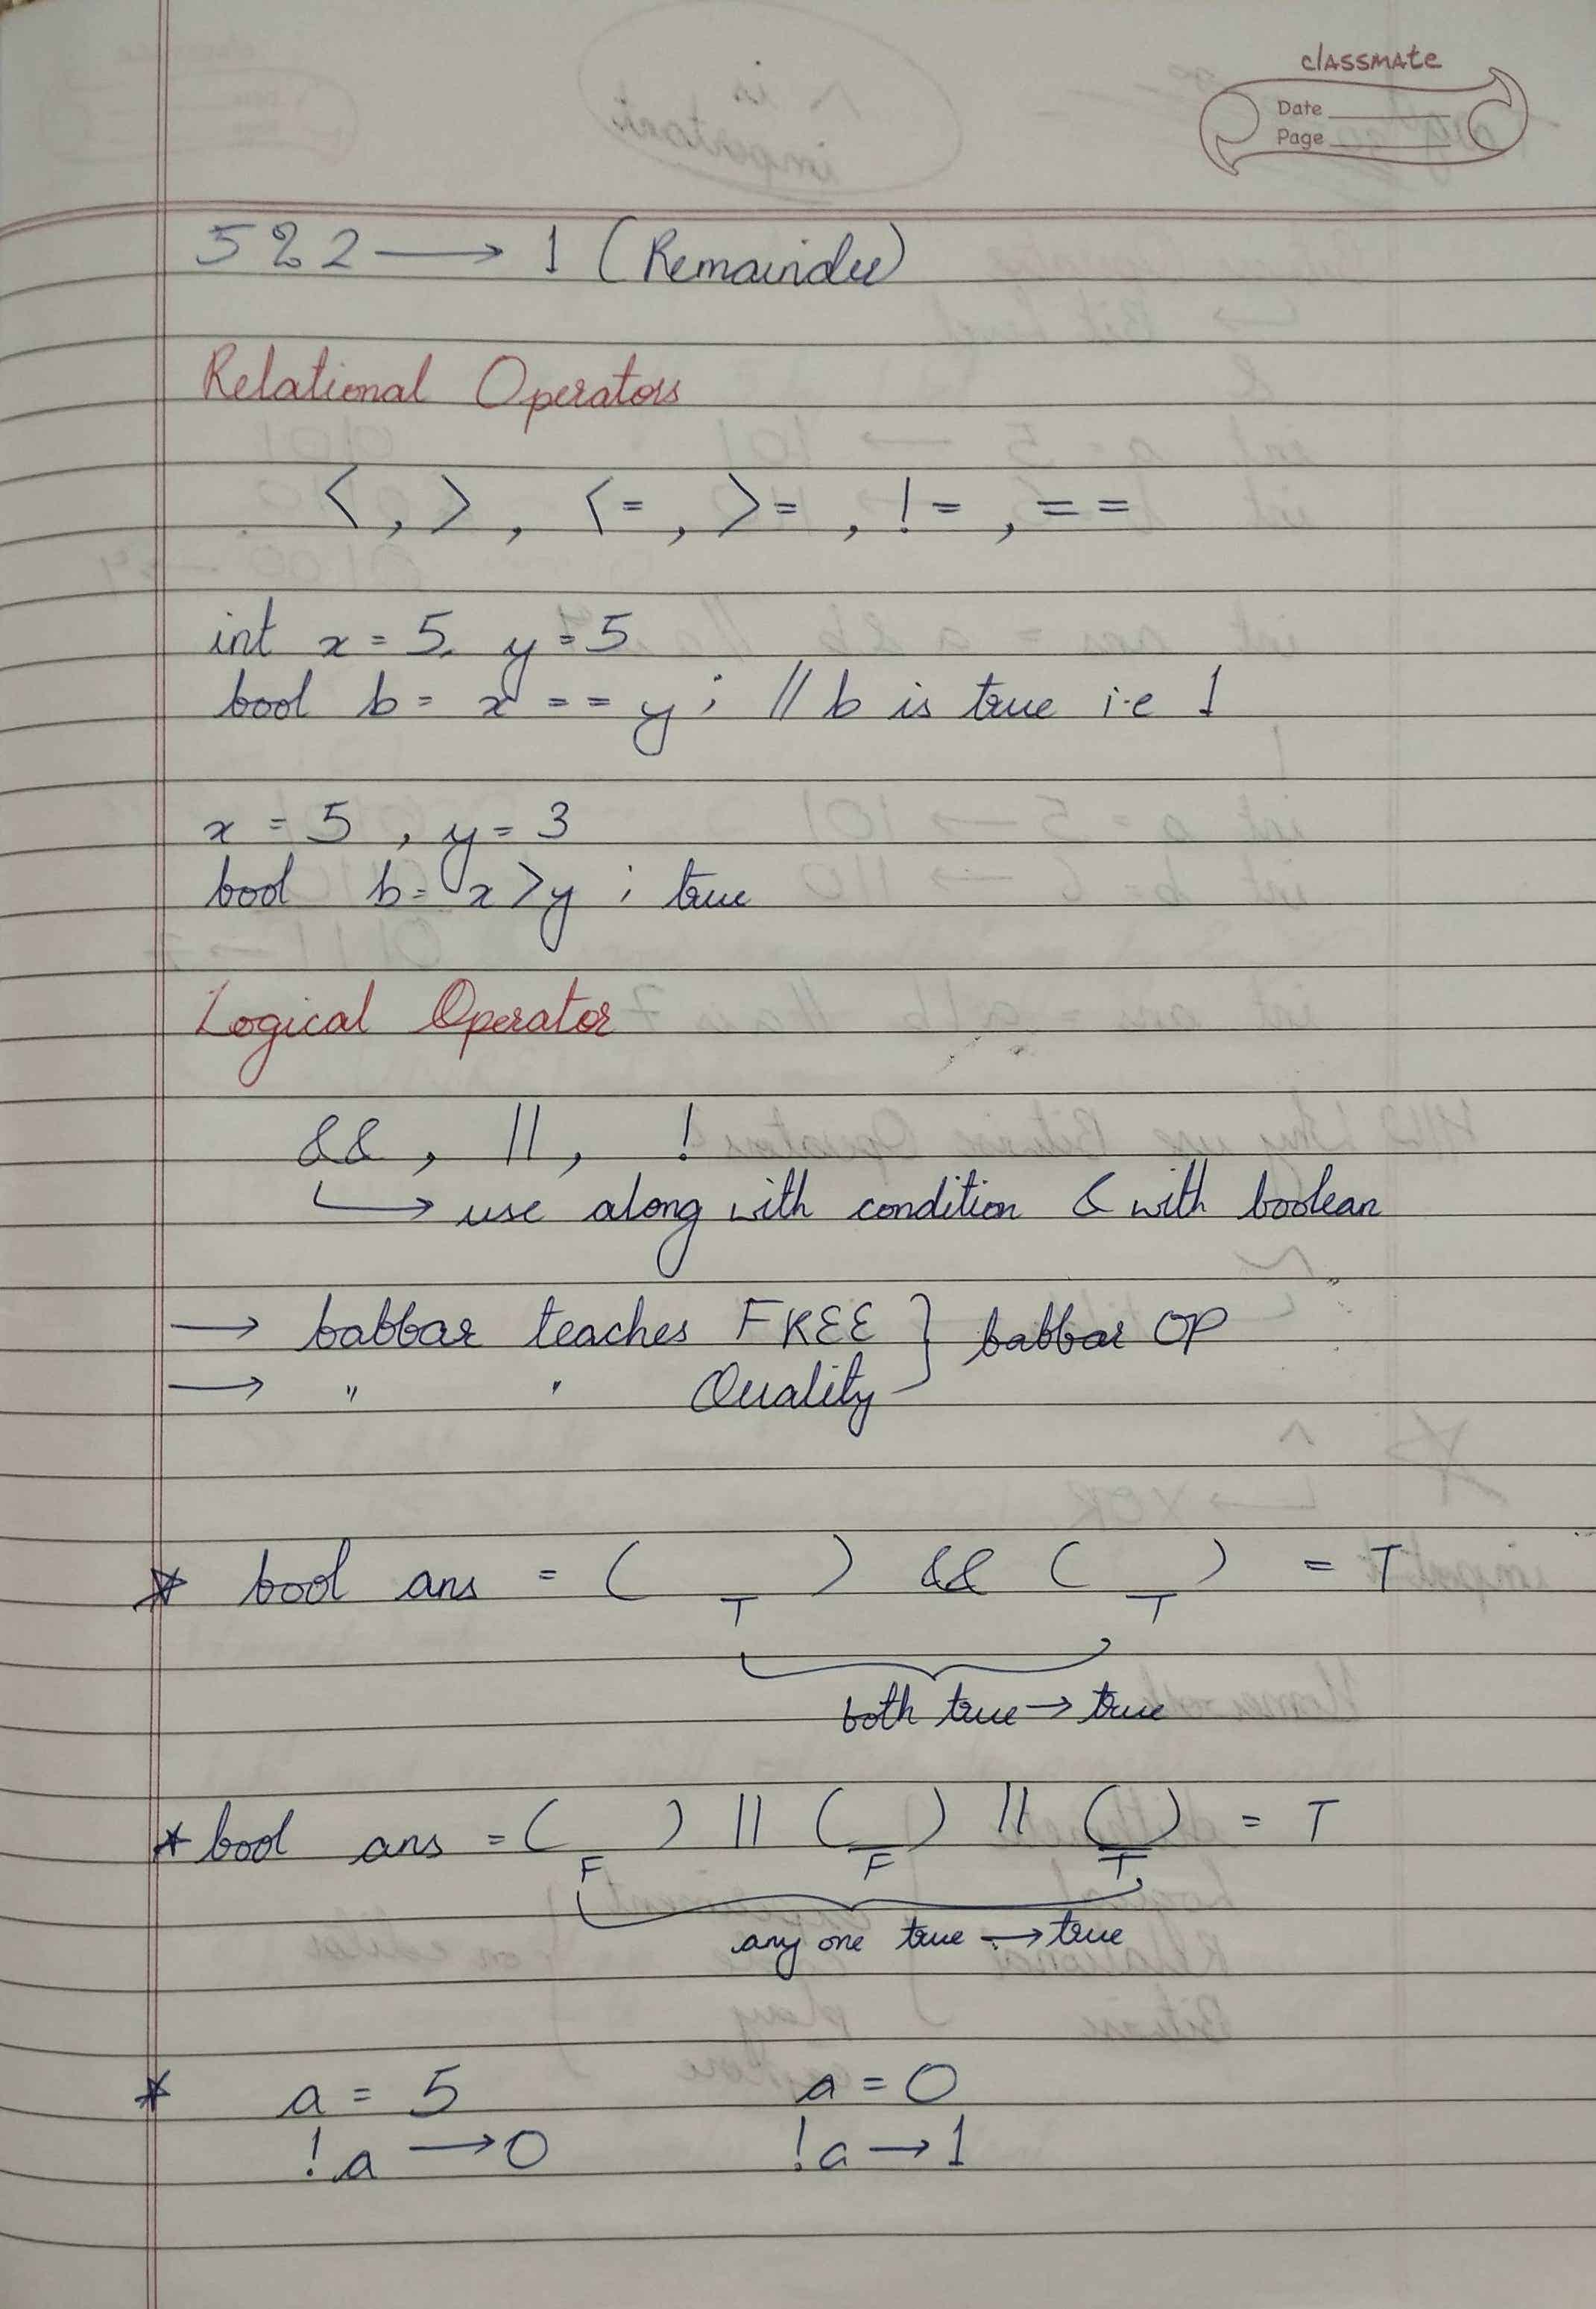 classmate
Date
Page
5 % 2 → 1 (Remainder)
Relational Operators
<, >, <=, >=, !=, ==
int x = 5, y = 5
bool b = x == y; // b is true i.e 1
x = 5, y = 3
bool b = x > y ; true
Logical Operator
&&, ||, !
↳ use along with condition & with boolean
→ babbar teaches FREE } babbar OP
→ " " Quality
* bool ans = ( T ) && ( T ) = T
both true → true
* bool ans = ( F ) || ( F ) || ( T ) = T
any one true → true
* a = 5 a = 0
!a → 0 !a → 1